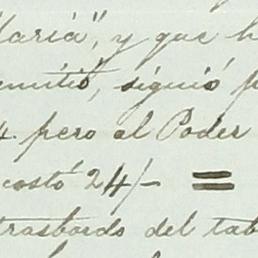 María", y que h
emitió, siguió p
4. pero al Poder
costó 24/- =
trasbordo del tab